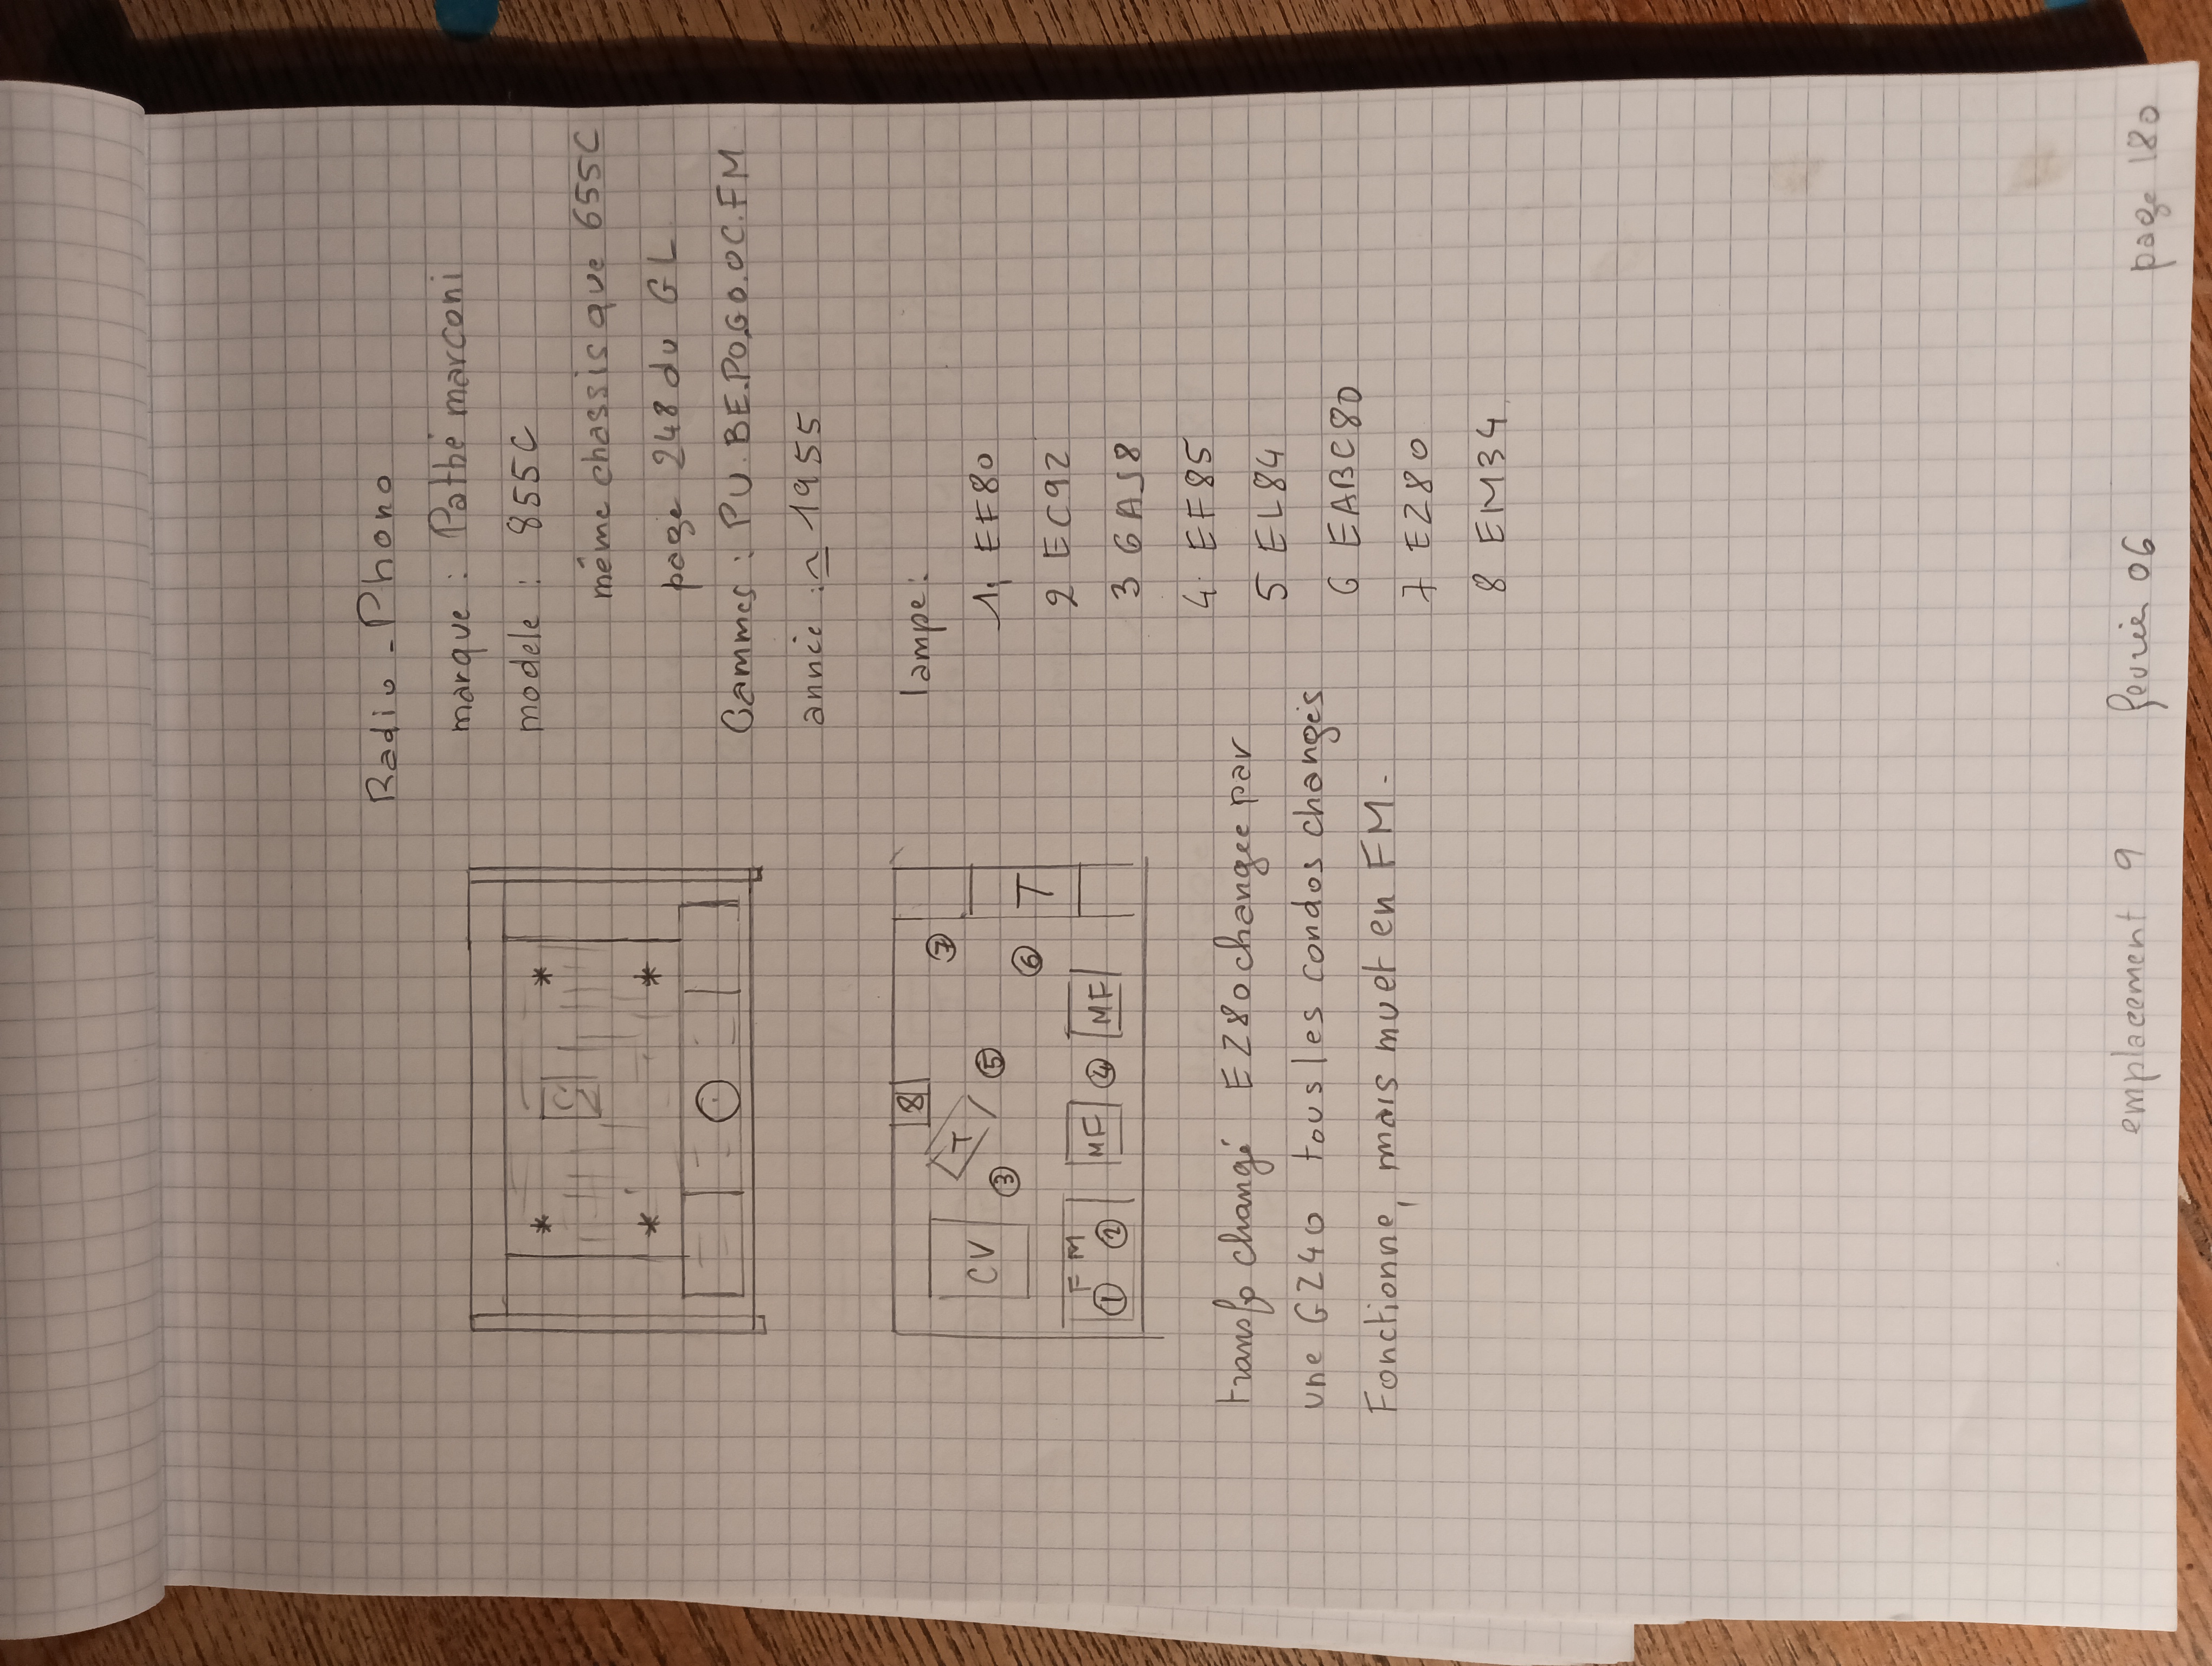 Radio - Phono
marque : Pathé marconi
modele : 855C
même chassis que 655C
page 248 du GL
Gammes : PU.BE.PO.GO.OC.FM
année : ≃ 1955
8
7
CV
T
3
5
6
T
FM
1
2
MF
4
MF
lampe :
1, EF80
2 EC92
3 6AJ8
4. EF85
5 EL84
6 EABC80
7 EZ80
8 EM34
transfo changé EZ80 changee par
une GZ40 tous les condos changés
Fonctionne, mais muet en FM.
emplacement 9
fevrier 06
page 180